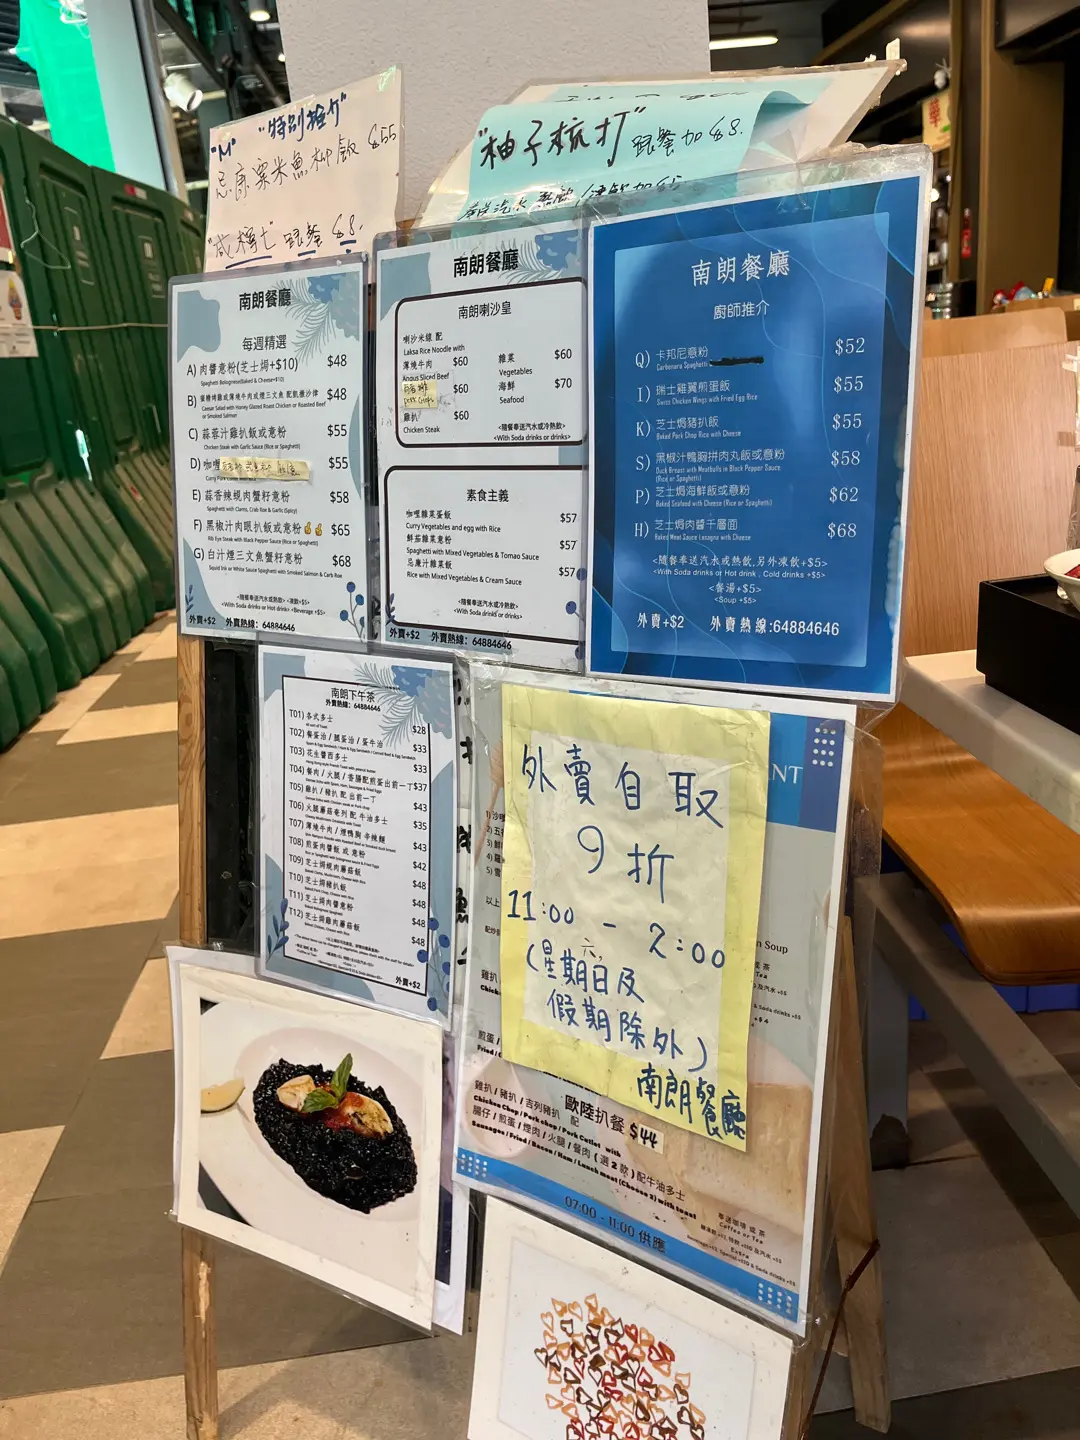 "特別推介"
"M"
忌廉粟米魚柳飯 $55
"咸檸七" 跟餐 $8.
"柚子梳打" 跟餐加$8.
南朗餐廳
每週精選
A) 肉醬意粉(芝士焗+$10) $48
Spaghetti Bolognese(Baked & Cheese+$10)
B) 蜜糖烤雞或薄燒牛肉或煙三文魚 配凱撒沙律 $48
Caesar Salad with Honey Glazed Roast Chicken or Roasted Beef
or Smoked Salmon
C) 蒜蓉汁雞扒飯或意粉 $55
Chicken Steak with Garlic Sauce (Rice or Spaghetti)
D) 咖喱 $55
E) 蒜香辣蜆肉蟹籽意粉 $58
Spaghetti with Clams, Crab Roe & Garlic(Spicy)
F) 黑椒汁肉眼扒飯或意粉 $65
Rib Eye Steak with Black Pepper Sauce (Rice or Spaghetti)
G) 白汁煙三文魚蟹籽意粉 $68
Squid Ink or White Sauce Spaghetti with Smoked Salmon & Carb Roe
<隨餐奉送汽水或熱飲> <凍飲+$5>
<With Soda drinks or Hot drink> <Beverage +$5>
外賣+$2 外賣熱線: 64884646
南朗餐廳
南朗喇沙皇
喇沙米線 配
Laksa Rice Noodle with
薄燒牛肉 $60
Angus Sliced Beef
$60
Pork Chops
雞扒 $60
Chicken Steak
雜菜 $60
Vegetables
海鮮 $70
Seafood
<隨餐奉送汽水或冷熱飲>
<With Soda drinks or drinks>
素食主義
咖喱雜菜蛋飯 $57
Curry Vegetables and egg with Rice
鮮茄雜菜意粉 $57
Spaghetti with Mixed Vegetables & Tomao Sauce
忌廉汁雜菜飯 $57
Rice with Mixed Vegetables & Cream Sauce
<隨餐奉送汽水或冷熱飲>
<With Soda drinks or drinks>
外賣+$2 外賣熱線: 64884646
南朗餐廳
廚師推介
Q) 卡邦尼意粉 $52
Carbonara Spaghetti
I) 瑞士雞翼煎蛋飯 $55
Swiss Chicken Wings with Fried Egg Rice
K) 芝士焗豬扒飯 $55
Baked Pork Chop Rice with Cheese
S) 黑椒汁鴨胸拼肉丸飯或意粉 $58
Duck Breast with Meatballs in Black Pepper Sauce
(Rice or Spaghetti)
P) 芝士焗海鮮飯或意粉 $62
Baked Seafood with Cheese (Rice or Spaghetti)
H) 芝士焗肉醬千層面 $68
Baked Meat Sauce Lasagna with Cheese
<隨餐奉送汽水或熱飲,另外凍飲+$5>
<With Soda drinks or Hot drink . Cold drinks +$5>
<餐湯+$5>
<Soup +$5>
外賣+$2 外賣熱線:64884646
南朗下午茶
外賣熱線: 64884646
T01) 各式多士 $28
T02) 餐蛋治 / 腿蛋治 / 蛋牛治 $33
T03) 花生醬西多士 $33
T04) 餐肉 / 火腿 / 香腸配煎蛋出前一丁 $37
T05) 雞扒 / 豬扒 配 出前一丁 $43
T06) 火腿蘑菇奄列 配 牛油多士 $35
T07) 薄燒牛肉 / 煙鴨胸 辛辣麵 $43
T08) 煎蛋肉醬飯 或 意粉 $42
T09) 芝士焗燒肉蘑菇飯 $48
T10) 芝士焗豬扒飯 $48
T11) 芝士焗肉醬意粉 $48
T12) 芝士焗雞肉蘑菇飯 $48
外賣+$2
外賣自取
9折
11:00 - 2:00
(星期六,日及
假期除外)
南朗餐廳
NT
n Soup
歐陸扒餐 $44
雞扒 / 豬扒 / 吉列豬扒 配
Chicken Chop / Pork chop / Pork Cutlet with
腸仔 / 煎蛋 / 煙肉 / 火腿 / 餐肉 ( 選 2 款 ) 配牛油多士
Sausages / Fried / Bacon / Ham / Lunch meat (Choose 2) with toast
奉送咖啡 或 茶
Coffee or Tea
07:00 - 11:00 供應